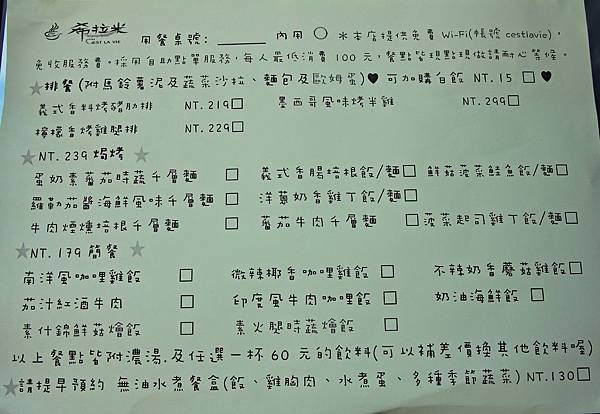 希拉米
C'EST LA VIE
用餐桌號: 內用 ○ ※本店提供免費 Wi-Fi(帳號 cestlavie),
免收服務費。採用自助點單服務,每人最低消費 100 元,餐點皆現點現做請耐心等候。
★排餐(附馬鈴薯泥及蔬菜沙拉、麵包及歐姆蛋)♥ 可加購白飯 NT. 15 □ ♥
義式香料烤豬肋排 NT. 219□ 墨西哥風味烤半雞 NT. 299□
檸檬香烤雞腿排 NT. 229□
★NT. 239 焗烤 ★
蛋奶素蕃茄時蔬千層麵 □ 義式香腸培根飯/麵□ 鮮菇菠菜鮭魚飯/麵□
羅勒茄醬海鮮風味千層麵 □ 洋蔥奶香雞丁飯/麵□
牛肉煙燻培根千層麵 □ 蕃茄牛肉千層麵 □菠菜起司雞丁飯/麵□
★NT. 179 簡餐 ★
南洋風咖哩雞飯 □ 微辣椰香咖哩雞飯 □ 不辣奶香蘑菇雞飯□
茄汁紅酒牛肉 □ 印度風牛肉咖哩飯 □ 奶油海鮮飯 □
素什錦鮮菇燴飯 □ 素火腿時蔬燴飯 □
以上餐點皆附濃湯及任選一杯 60 元的飲料(可以補差價換其他飲料喔)
★請提早預約 無油水煮餐盒(飯、雞胸肉、水煮蛋、多種季節蔬菜) NT.130□